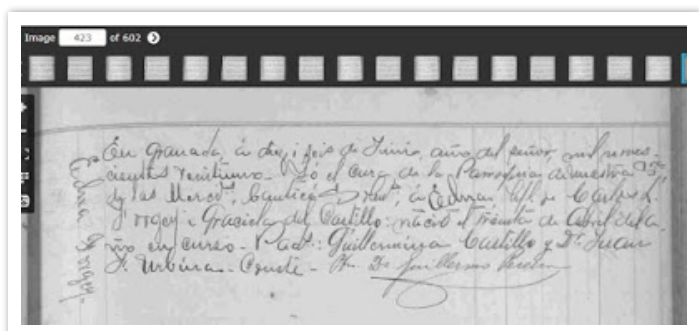 Image 423 of 602
En Granada, á diez i seis de Junio, año del señor, mil noves-
cientos veintiuno. Yó el cura de la Parroquia de nuestra Sra
de las Merced, bauticé á Edna, hija de Carlos
i Graciela del Castillo: nació el treinta de Abril del a-
ño en curso - Pad: Guillermina Castillo y Dr. Juan
J. Urbina - Conste - Guillermo
Edna